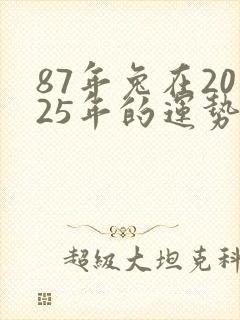 87年兔在20
25年的運勢
超級大坦克科